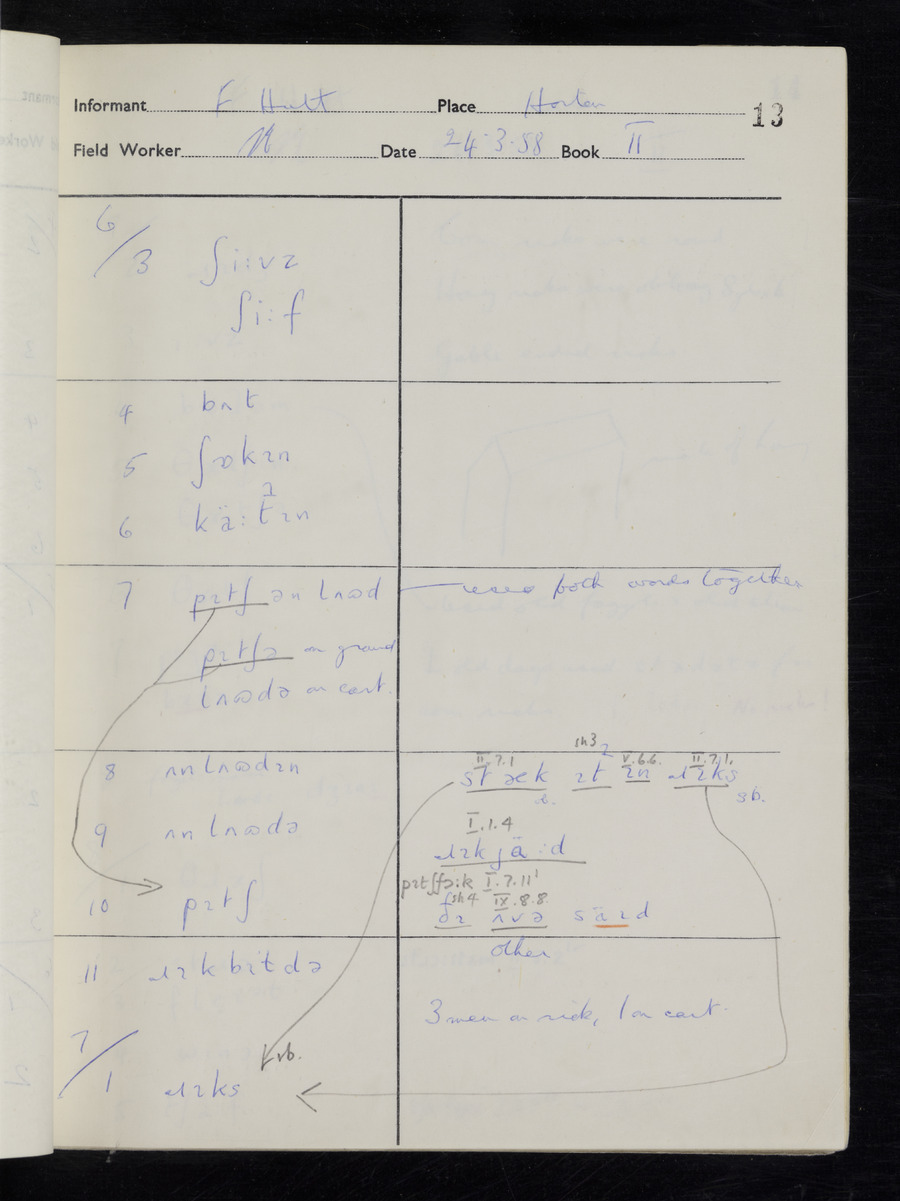 Informant F Hult Place Horton 13
Field Worker Date 24.3.58 Book II
6/3 ʃi:vz
ʃi:f
4 bʌt
5 ʃɒkɪn
6 kä:tɪn
7 pɪtʃ ən lʌʊd uses both words together
pɪtʃə on ground
lʌʊdə on cart.
sh3
II.7.1 V.6.6. II.7.1.
8 ʌnlʌʊdɪn stæk ɪt ɪn ɹɪks
sb.
I.1.4
9 ʌnlʌʊdə ɹɪkjä:d
pɪtʃfɔ:k I.7.11
sh4 IX.8.8
10 pɪtʃ ðɪ ʌvə säɪd
other
11 ɹɪkbɪtdə
3 men on rick, 1 on cart.
vb.
7/1 ɹɪks